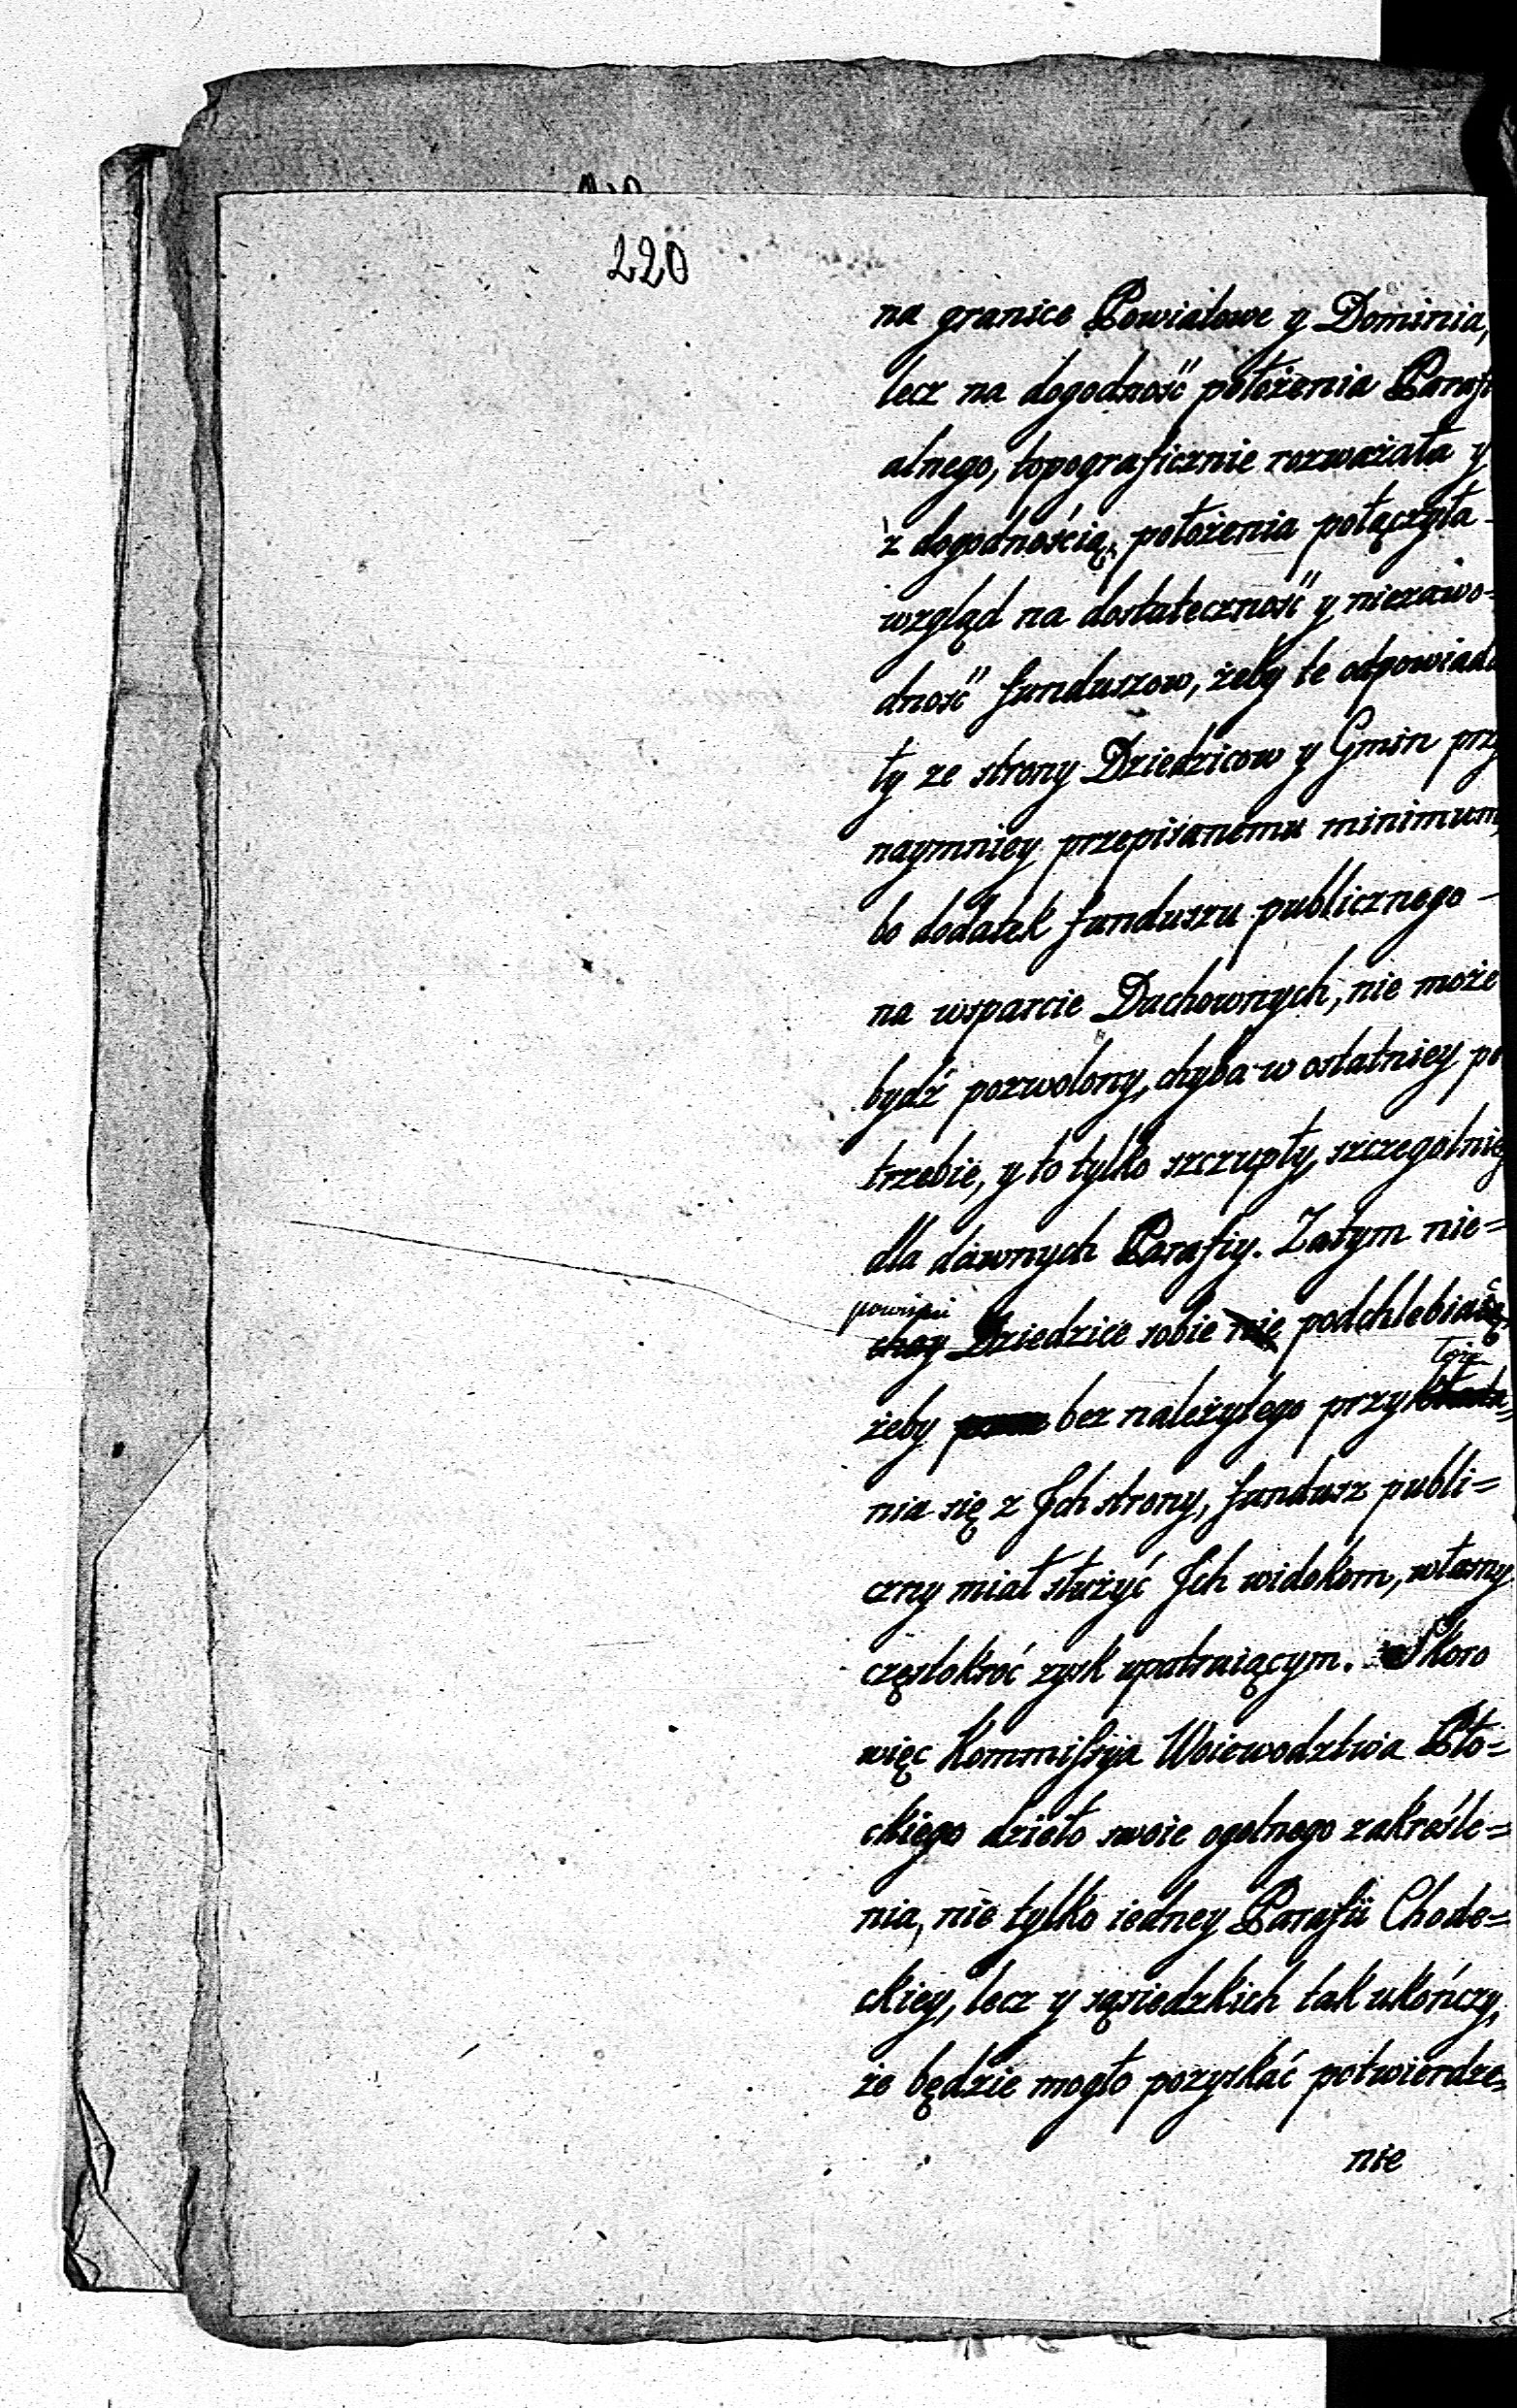 220
na granice Powiatowe y Dominia,
lecz na dogodność położenia Parafi
alnego, topograficznie rozważała y
z dogodnością położenia połączyła
wzgląd na dostateczność y niezawo=
dność funduszow, żeby te odpowiada
ły ze strony Dziedzicow y Gmin przy
naymniey przepisanemu minimum,
bo dodatek funduszu publicznego
na wsparcie Duchownych, nie może
bydź pozwolony, chyba w ostatniey po
trzebie, y to tylko szczupły, szczególniey
dla dawnych Parafiy. Zatym nie=
powinni
chay Dziedzice sobie nie podchlebiać
żeby bez należytego przykłada=
nia się z Ich strony, fundusz publi=
czny miał służyć Ich widokom, własny
częstokroć zysk upatruiącym. Skoro
więc Kommissyia Woiewodztwa Pło=
ckiego dzieło swoie ogolnego zakreśle=
nia, nie tylko iedney Parafii Chode=
ckiey, lecz y sąsiedzkich tak ukończy,
że będzie mogło pozyskać potwierdze=
nie